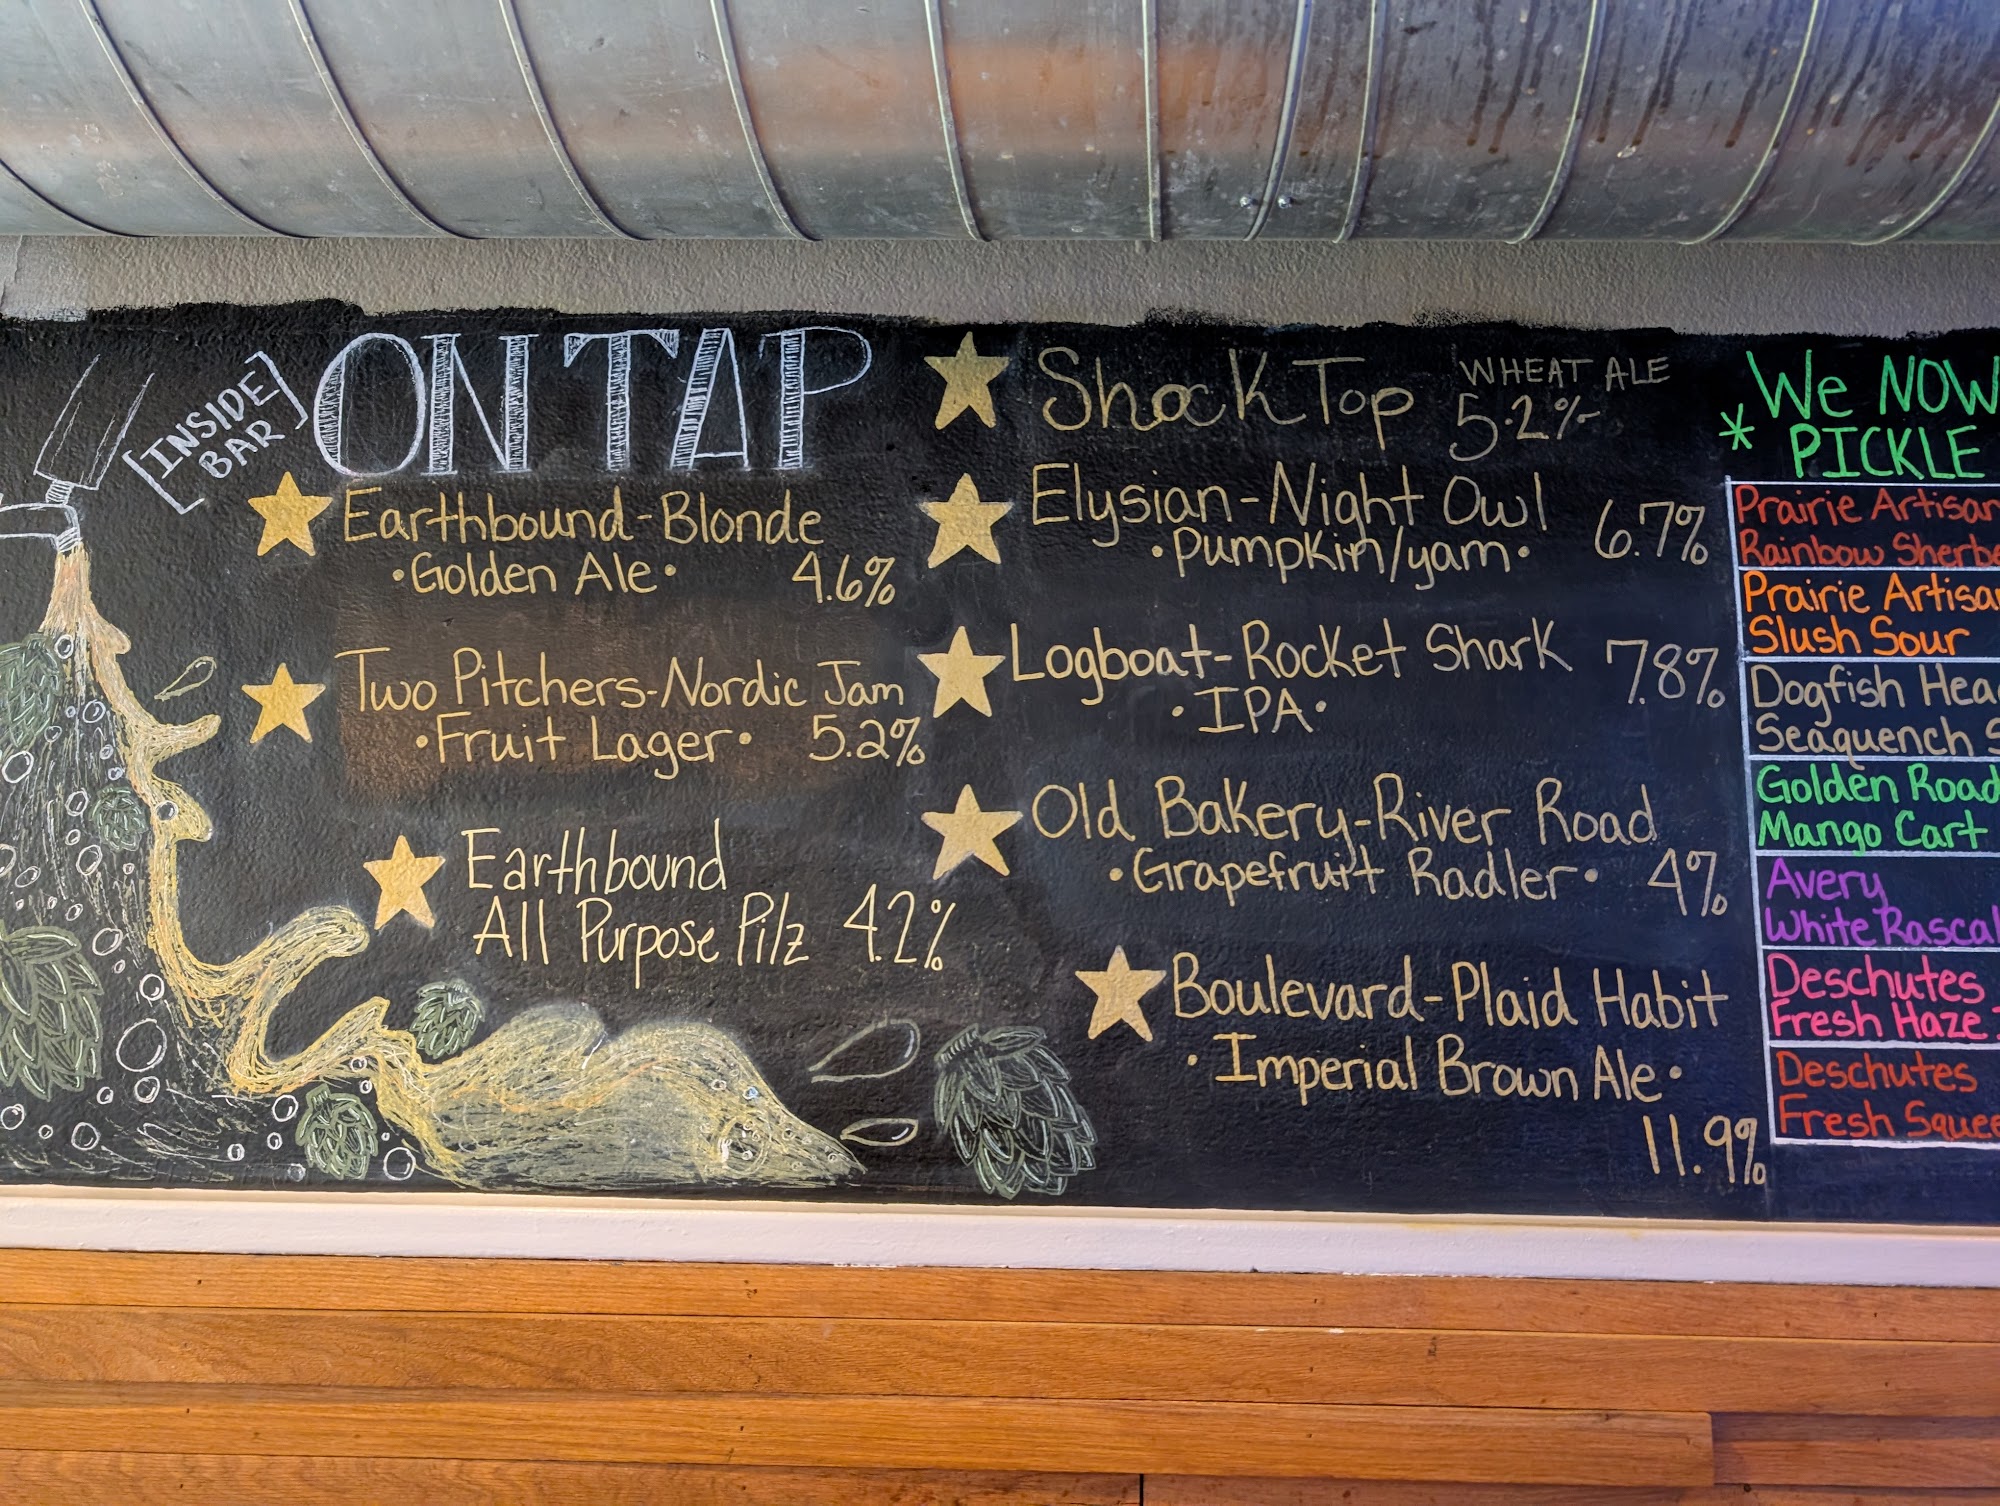 [INSIDE
BAR]
ON TAP
Earthbound-Blonde
•Golden Ale• 4.6%
Two Pitchers-Nordic Jam
•Fruit Lager• 5.2%
Earthbound
All Purpose Pilz 4.2%
Shock Top WHEAT ALE
5.2%
Elysian-Night Owl 6.7%
•Pumpkin/yam•
Logboat-Rocket Shark 7.8%
•IPA•
Old Bakery-River Road
•Grapefruit Radler• 4%
Boulevard-Plaid Habit
•Imperial Brown Ale•
11.9%
We NOW
* PICKLE
Prairie Artisan
Rainbow Sherbe
Prairie Artisa
Slush Sour
Dogfish Hea
Seaquench S
Golden Road
Mango Cart
Avery
White Rascal
Deschutes
Fresh Haze
Deschutes
Fresh Squee